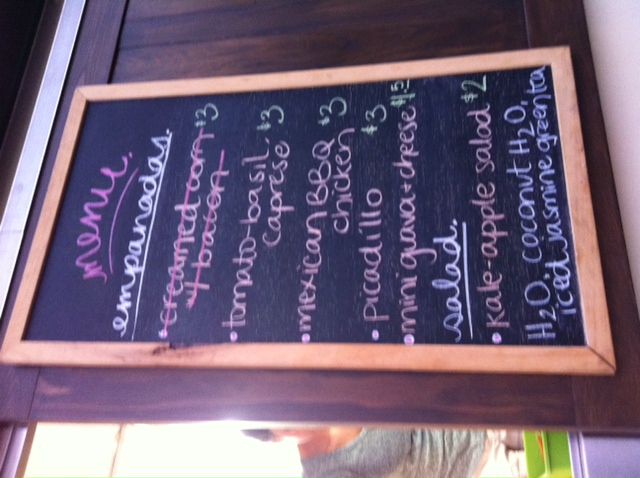 menu.
empanadas.
• creamed corn $3
w/ bacon
• tomato-basil $3
caprese
• mexican BBQ $3
chicken
• picadillo $3
• mini guava+cheese $1.5
salad.
• kale-apple salad $2
H2O, coconut H2O,
iced jasmine green tea